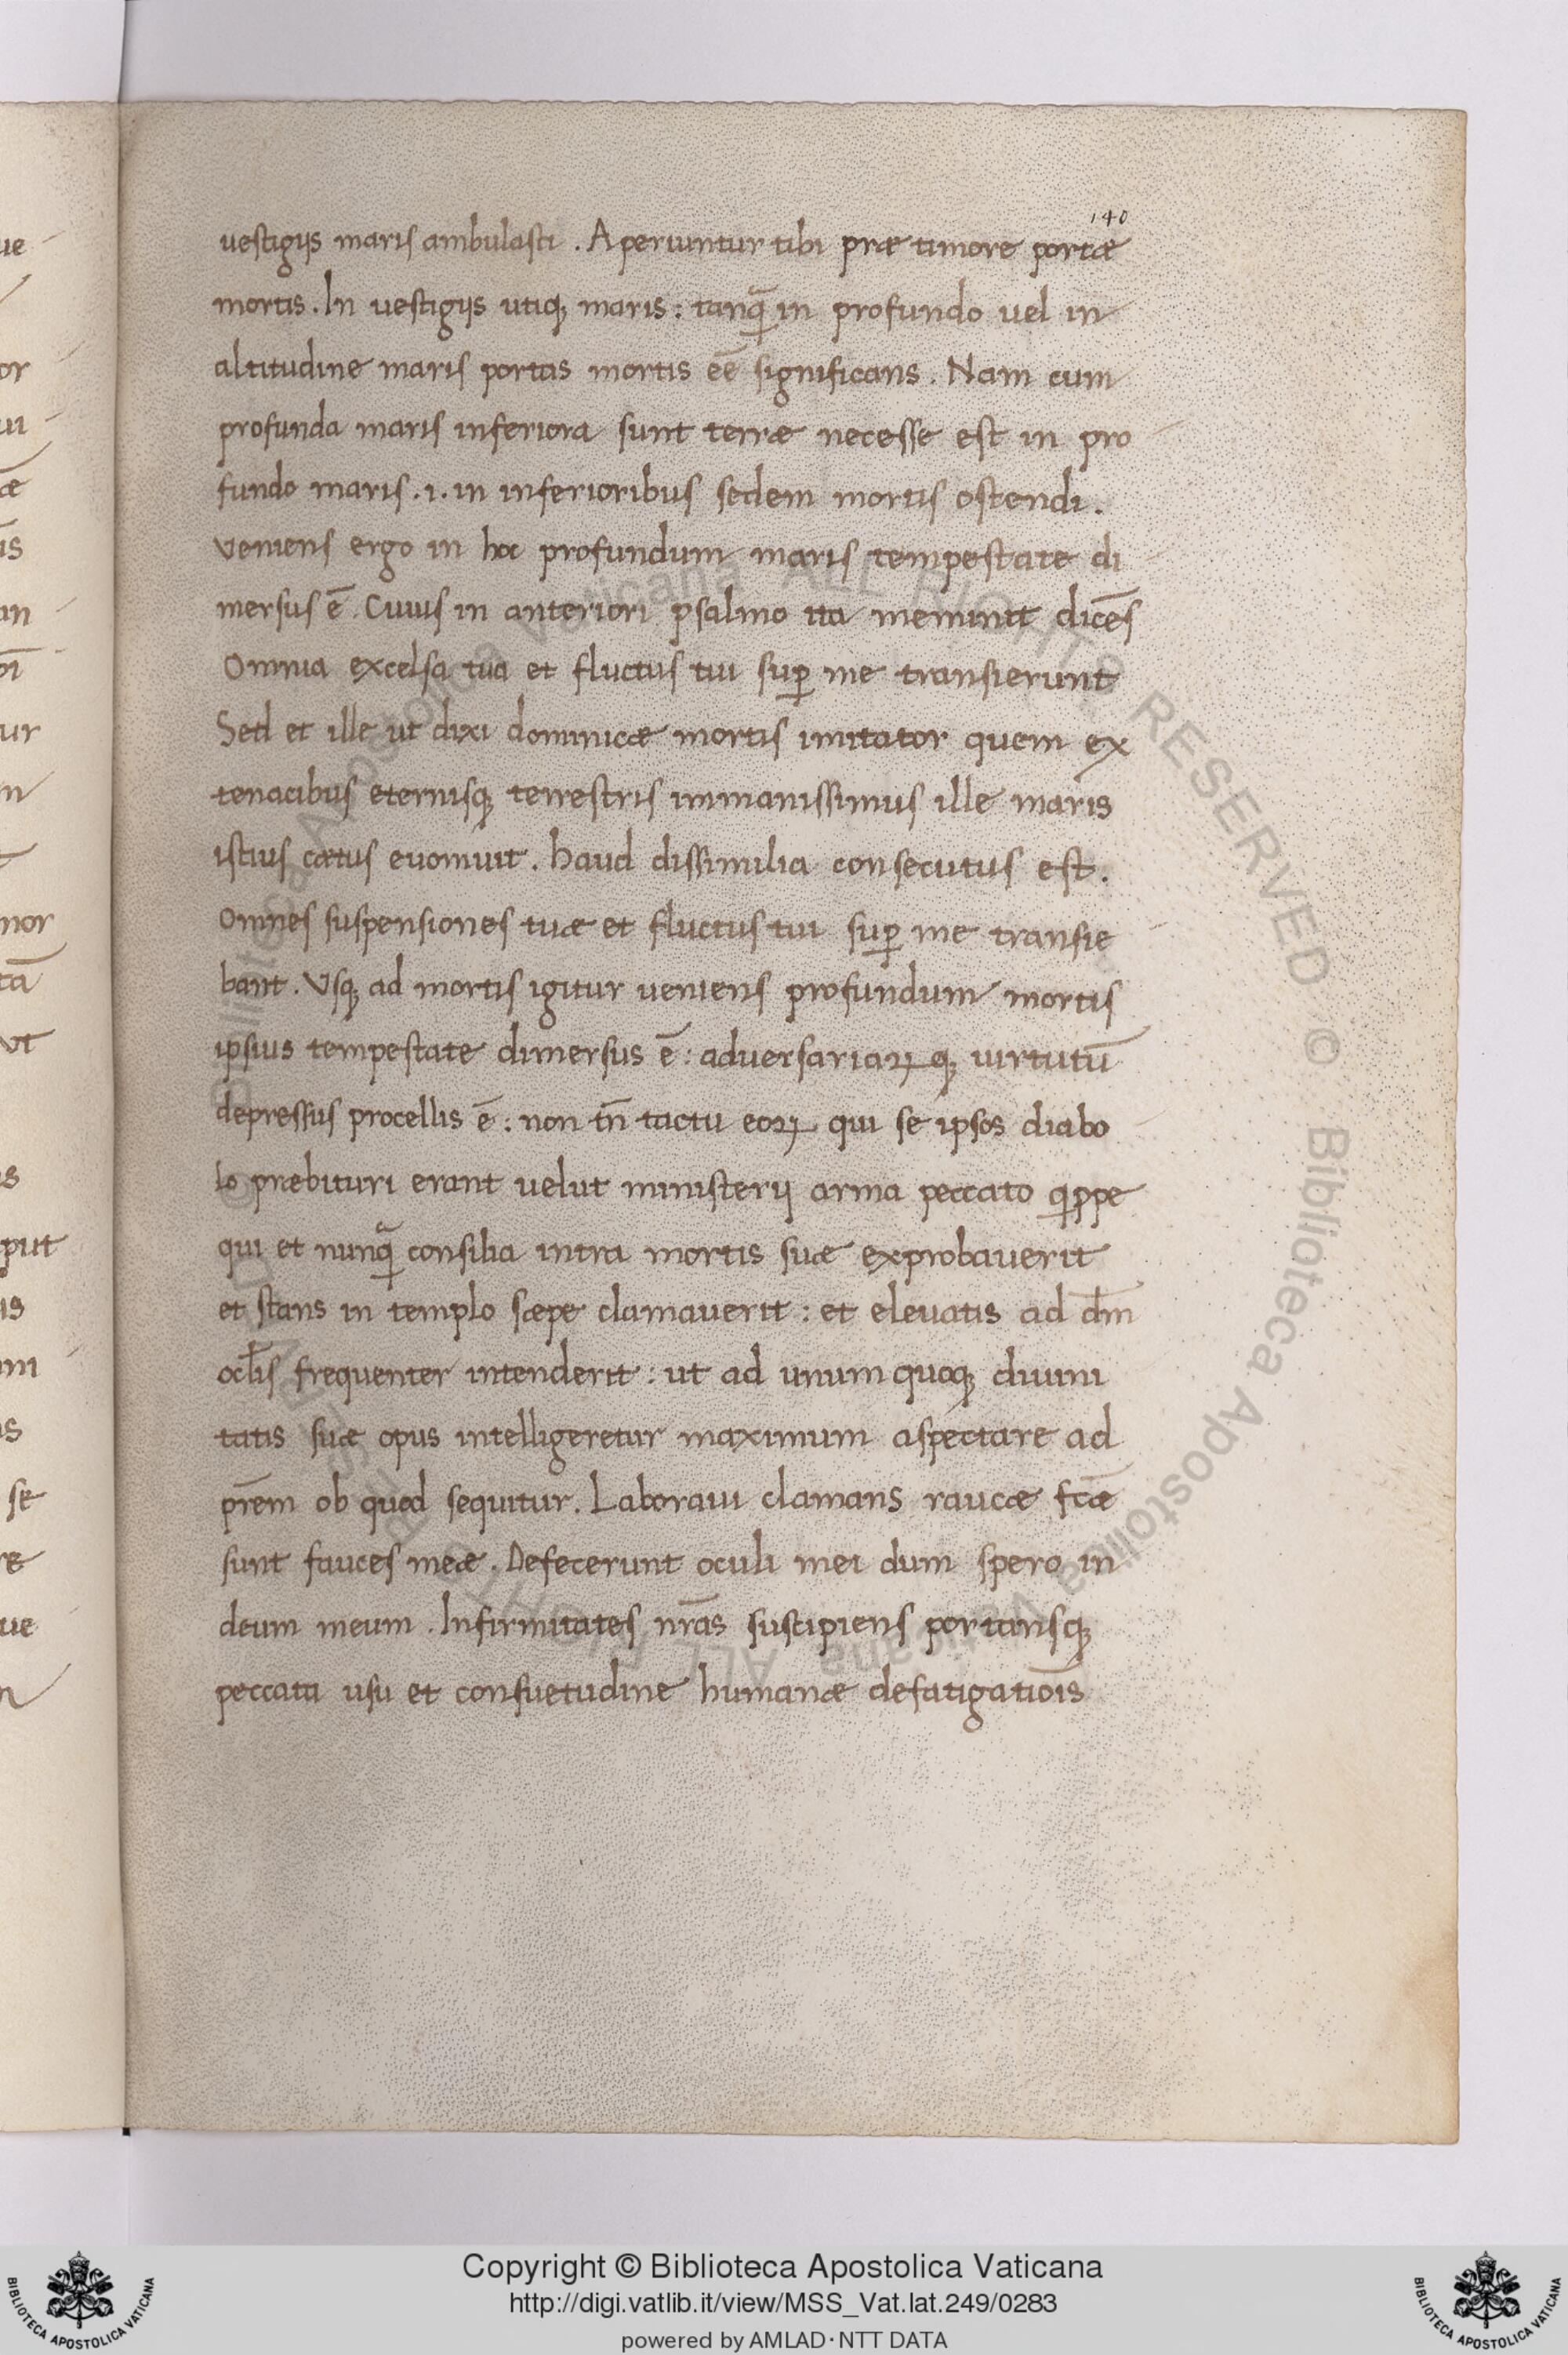 140
vestigijs maris ambulasti. Aperiuntur tibi præ timore portæ
mortis. In vestigijs utiqꝫ maris: tanq̃ in profundo vel in
altitudine maris portas mortis eē significans. Nam cum
profunda maris inferiora sunt terræ necesse est in pro
fundo maris .i. in inferioribus sedem mortis ostendi.
veniens ergo in hoc profundum maris tempestate di
mersus ē. Cuius in anteriori psalmo ita meminit dicēs
Omnia excelsa tua et fluctus tui suꝑ me transierunt
Sed et ille ut dixi dominicæ mortis imitator quem ex
tenacibus eternisqꝫ terrestris immanissimus ille maris
istius cætus evomuit. haud dissimilia consecutus est.
Omnes suspensiones tuæ et fluctus tui suꝑ me transie
bant. Vsqꝫ ad mortis igitur veniens profundum mortis
ipsius tempestate dimersus ē: adversariaꝝ qꝫ virtutū
depressus procellis ē: non tn̄ tactu eoꝝ qui se ipsos diabo
lo præbituri erant velut ministerij arma peccato qippe
qui et nunq̃ consilia intra mortis suæ exprobaverit
et stans in templo sæpe clamaverit: et elevatis ad dm̄
ocl̄is frequenter intenderit: ut ad unum quoqꝫ divini
tatis suæ opus intelligeretur maximum aspectare ad
prēm ob quod sequitur. Laboravi clamans raucæ fcāe
sunt fauces meæ. Defecerunt oculi mei dum spero in
deum meum. Infirmitates nrās suscipiens portansqꝫ
peccata usu et consuetudine humanæ defatigatiōis
Copyright © Biblioteca Apostolica Vaticana
http://digi.vatlib.it/view/MSS_Vat.lat.249/0283
powered by AMLAD·NTT DATA